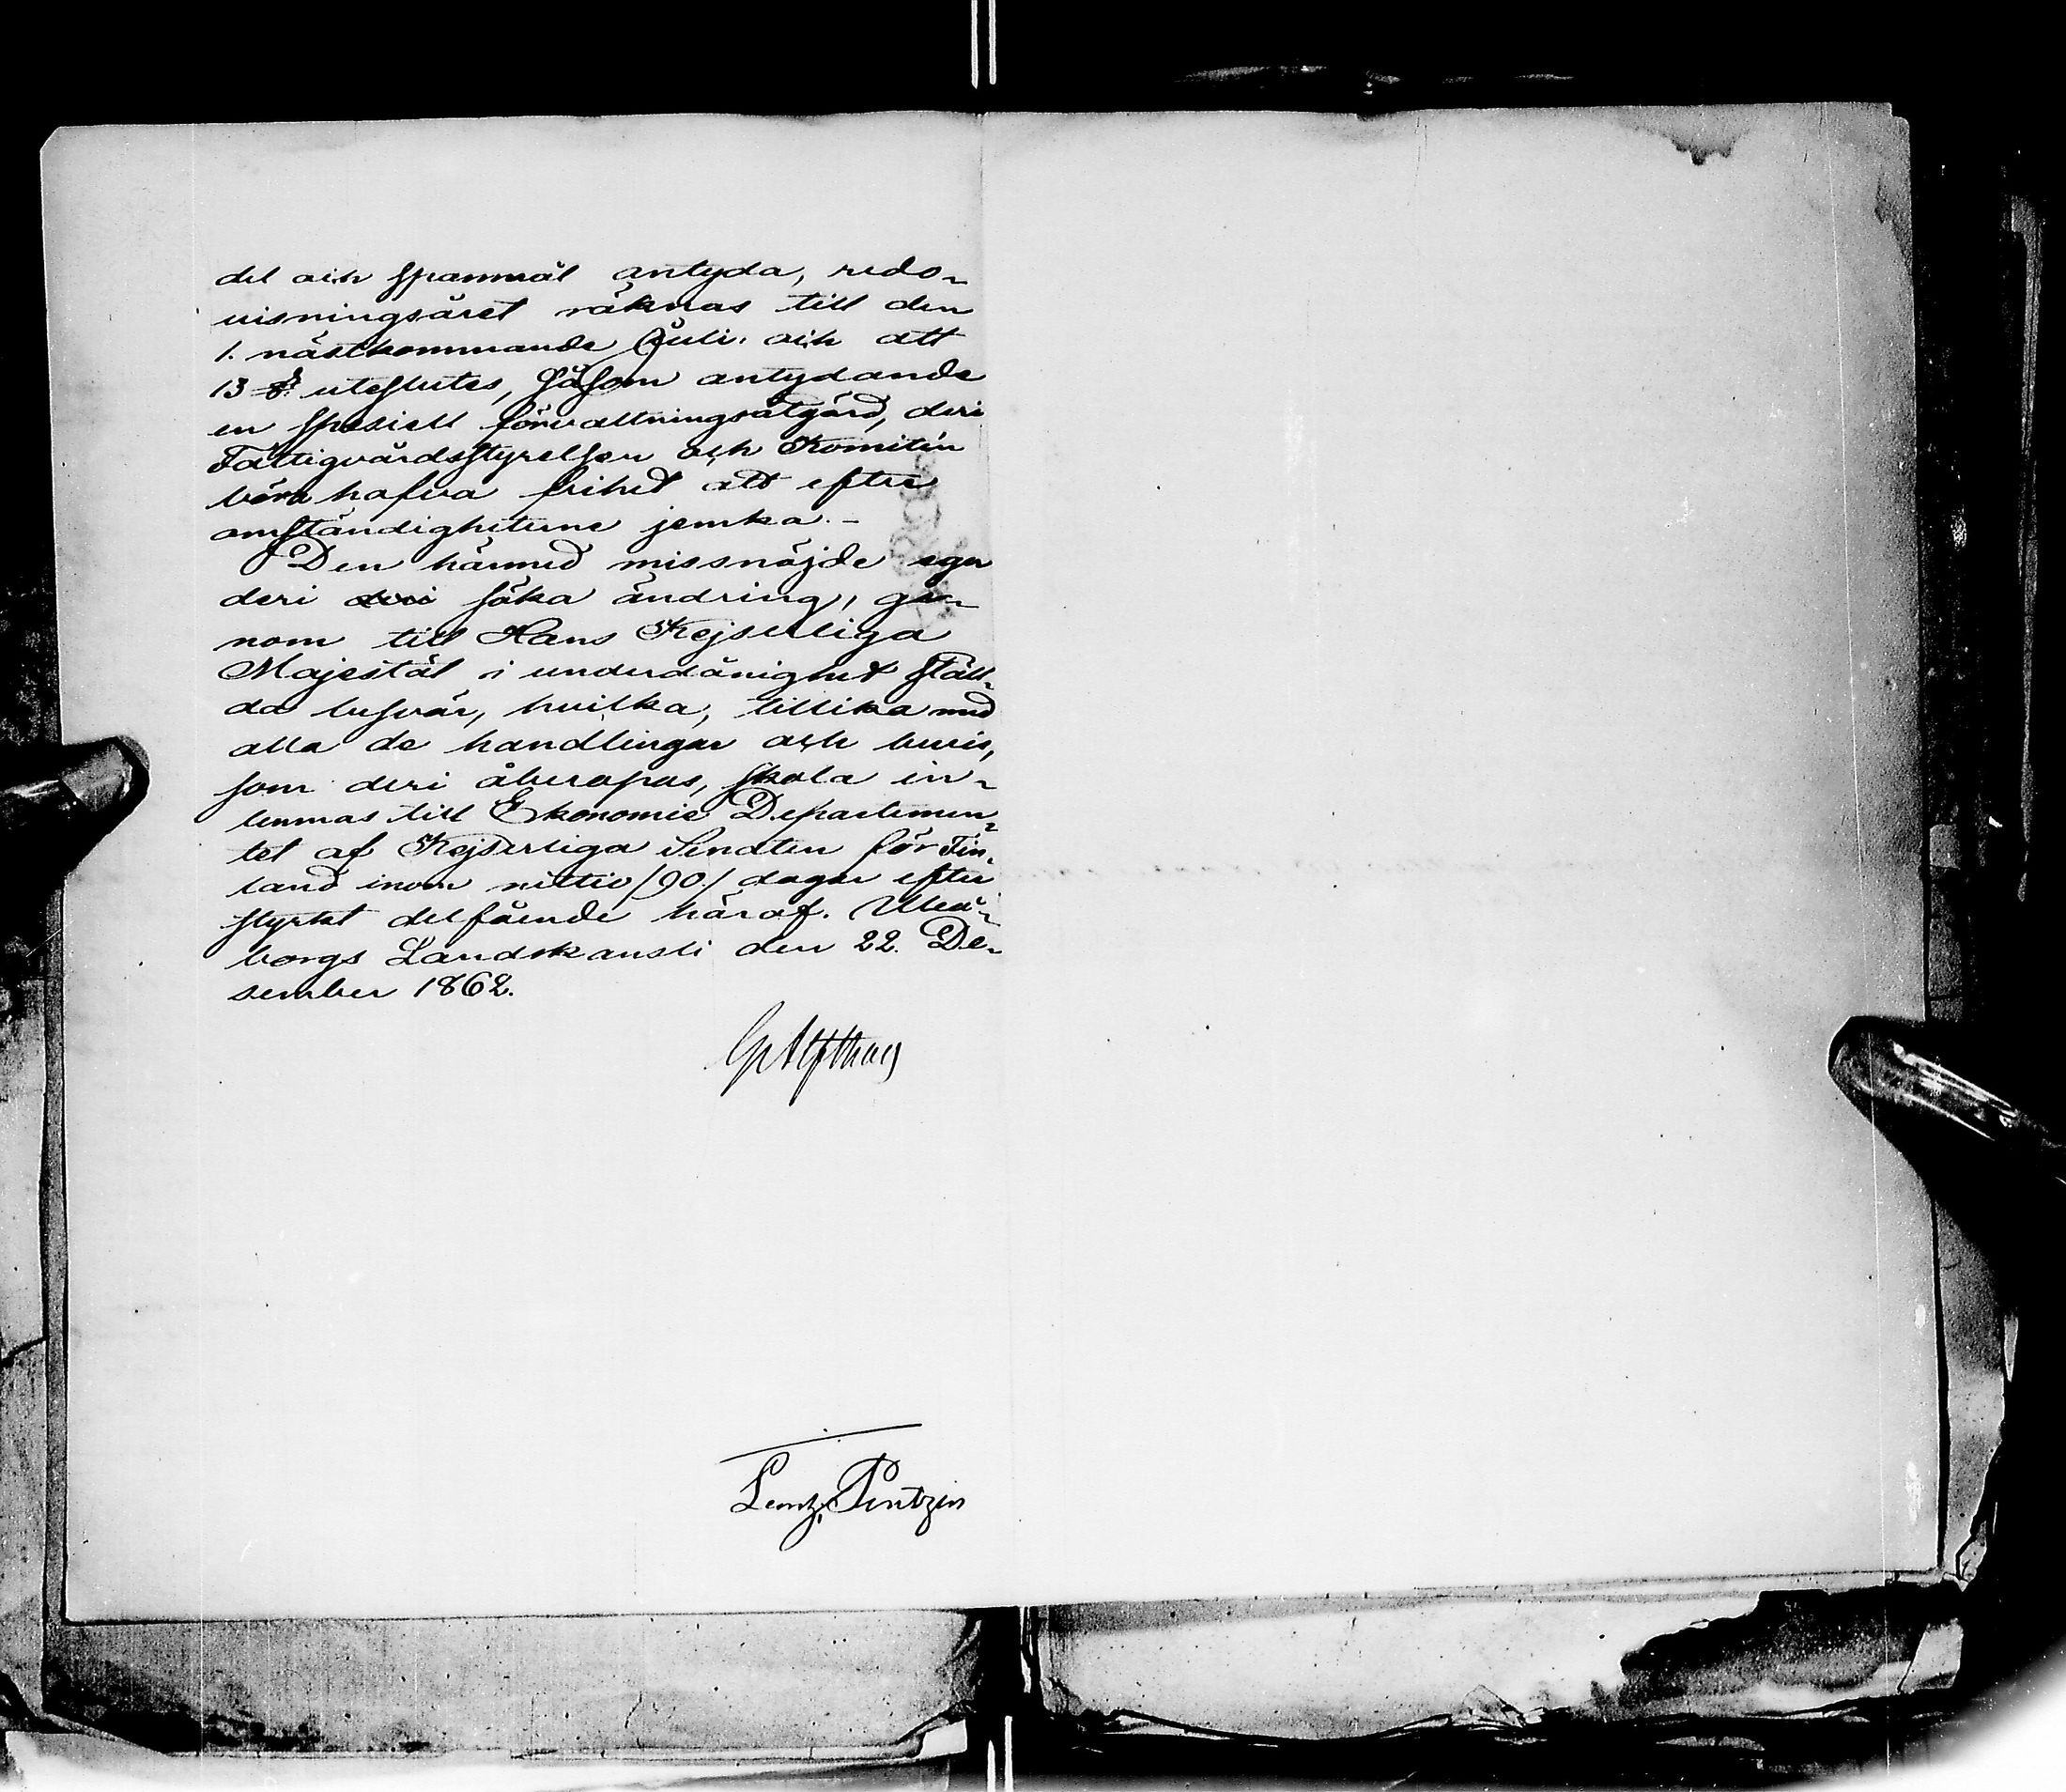 del och spannmål antyda, redo-
visningsåret räknas till den
1. nästkommande Juli, och att
13 § uteslutes, såsom antydande
en spesiell förvaltningsåtgärd, deri
Fattigvårdsstyrelsen och Komitén
böra hafva frihet att efter
omständigheterne jemka. -
Den härmed missnöjde eger
deri deri söka ändring, ge-
nom till Hans Kejserliga
Majestät i underdånighet ställ-
da besvär, hvilka, tillika med
alla de handlingar och bevis,
som deri åberopas, skola in-
lemnas till Ekonomie Departemen-
tet af Kejserliga Senaten för Fin-
land inom nittio /90./ dagar efter
styrkt delfående häraf. Uleå-
borgs Landskansli den 22. De-
sember 1862.
G Alfthan